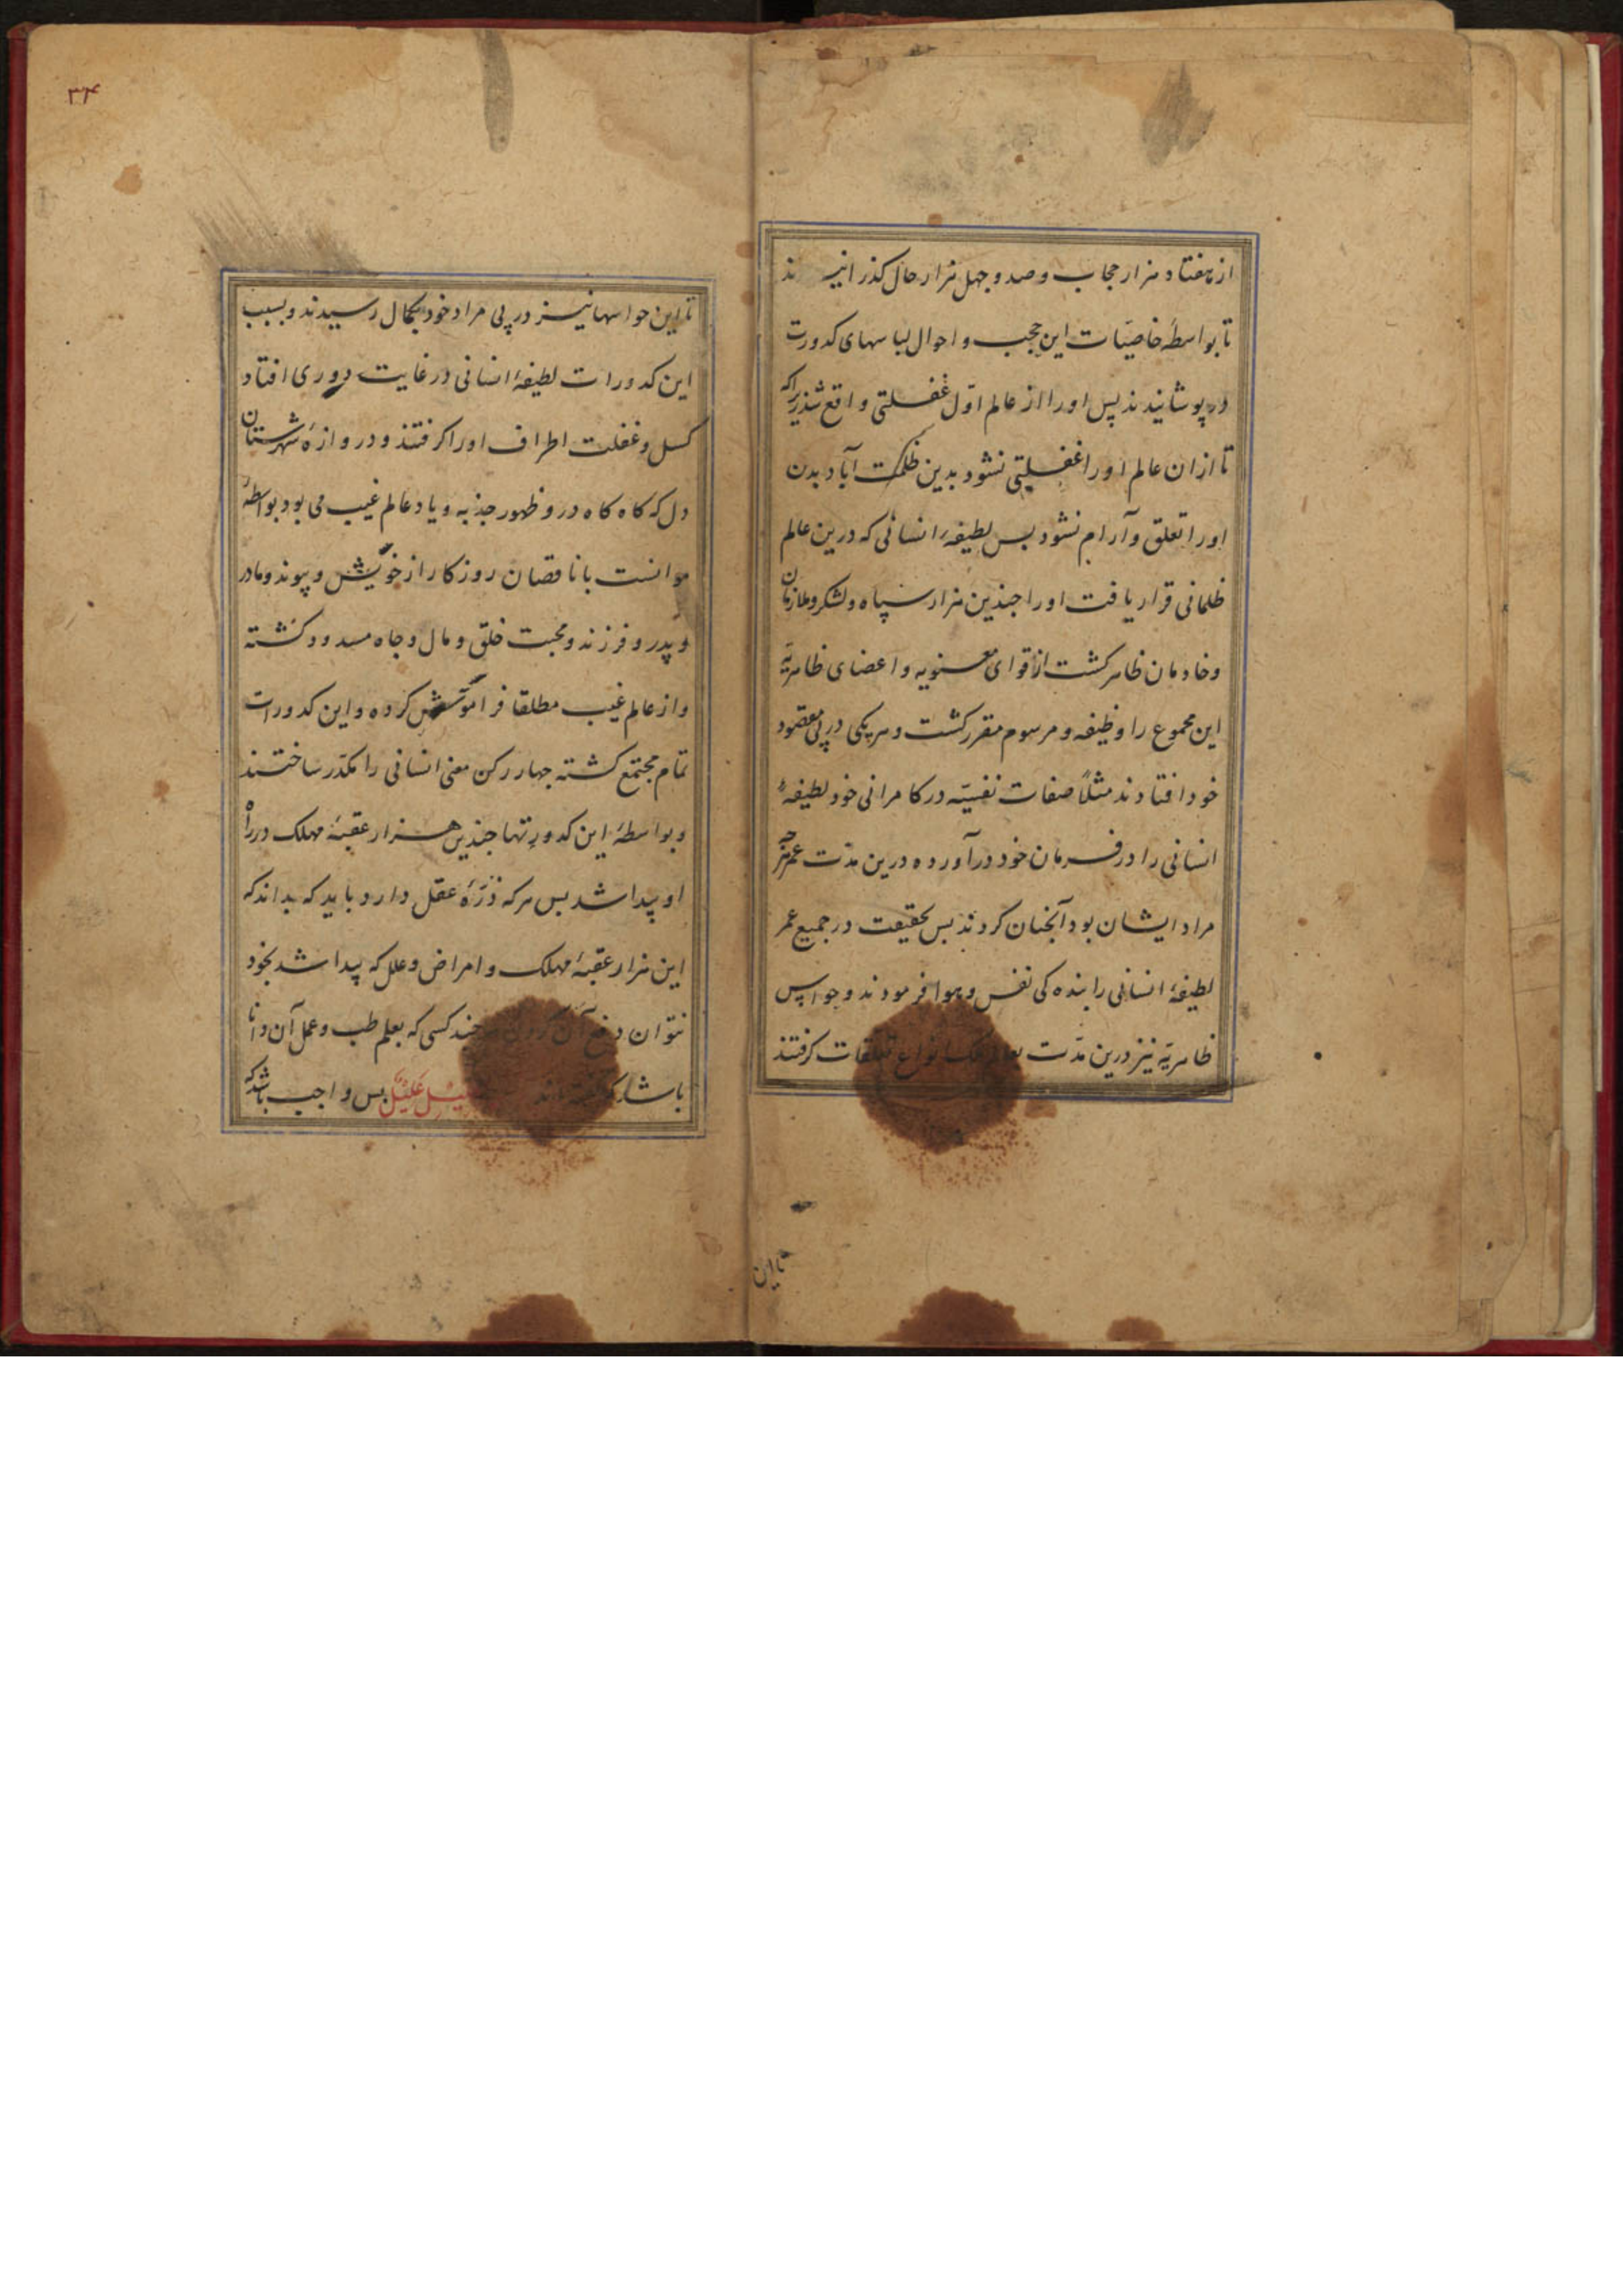 از هفتاد هزار حجاب و صد و چهل هزار حال کذرانید ند
تا بواسطهٔ خاصیّات این حجب و احوال لباسهای کدورت
در پوشانیدند پس او را از عالم اوّل غفلتی واقع شد زیراکه
تا ازان عالم او را غفلتی نشود بدین ظلمت آباد بدن
او را تعلق و آرام نشود بس لطیفهٔ انسانی که درین عالم
ظلمانی قرار یافت او را جندین هزار سپاه و لشکر و ملازمان
و خادمان ظاهر کشت از قوای معنویه و اعضای ظاهریّه
این مجموع را وظیفه و مرسوم مقرر کشت و هر یکی در پی مقصود
خود افتادند مثلاً صفات نفسیّه در کامرانی خود لطیفهٔ
انسانی را در فرمان خود درآورده درین مدّت عمر هرچه
مراد ایشان بود آنجنان کردند بس بحقیقت در جمیع عمر
لطیفهٔ انسانی را بنده کی نفس و هوا فرمودند و حواس
ظاهریّه نیز درین مدّت بعالم ملک انواع تعلقات کرفتند
تا این
۳۴
تا این حواسها نیز در پی مراد خود بکمال رسیدند و بسبب
این کدورات لطیفهٔ انسانی در غایت دوری افتاد
کسل و غفلت اطراف او را کرفتند و دروازهٔ شهرستان
دل که کاه کاه درو ظهور جذبه و یاد عالم غیب می بود بواسطهٔ
موانست با ناقصان روزکار از خویش و پیوند و مادر
و پدر و فرزند و محبت خلق و مال و جاه مسدود کشته
و از عالم غیب مطلقا فراموش کرده و این کدورات
تمام مجتمع کشته جهار رکن معنی انسانی را مکدّر ساختند
و بواسطهٔ این کدورتها جندین هزار عقبهٔ مهلک در راه
او پیدا شد بس هر که ذرّهٔ عقل دارد باید که بداند که
این هزار عقبهٔ مهلک و امراض و علل که پیدا شد بخود
نتوان دفع آن کردن هرجند کسی که بعلم طب و عمل آن دانا
باشد که کفته اند علیل بس واجب باشد که